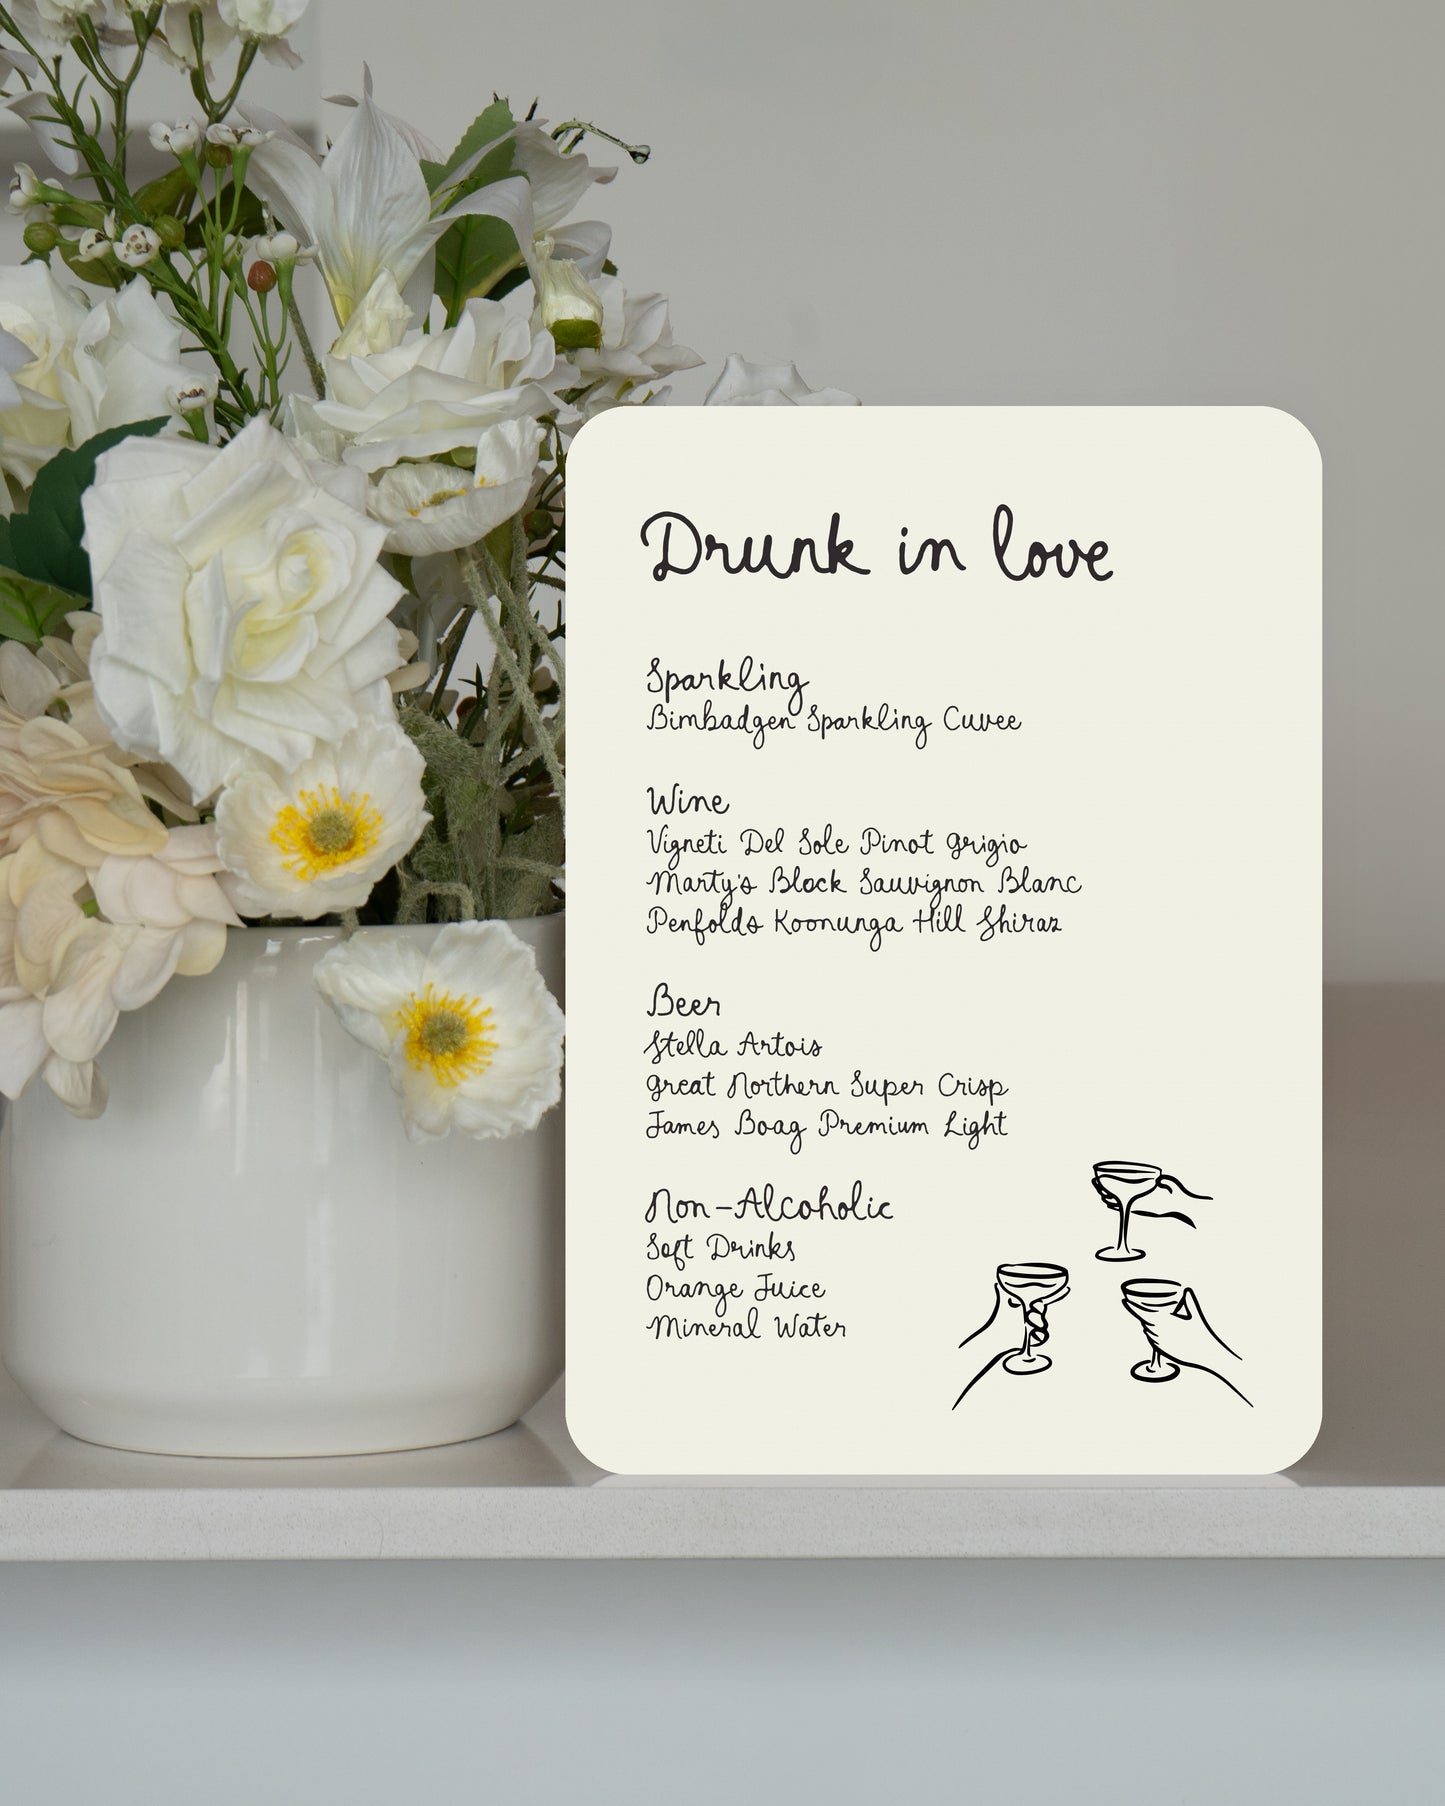 Drunk in love
Sparkling
Bimbadgen Sparkling Cuvee
Wine
Vigneti Del Sole Pinot Grigio
Marty's Block Sauvignon Blanc
Penfolds Koonunga Hill Shiraz
Beer
Stella Artois
Great Northern Super Crisp
James Boag Premium Light
Non-Alcoholic
Soft Drinks
Orange Juice
Mineral Water